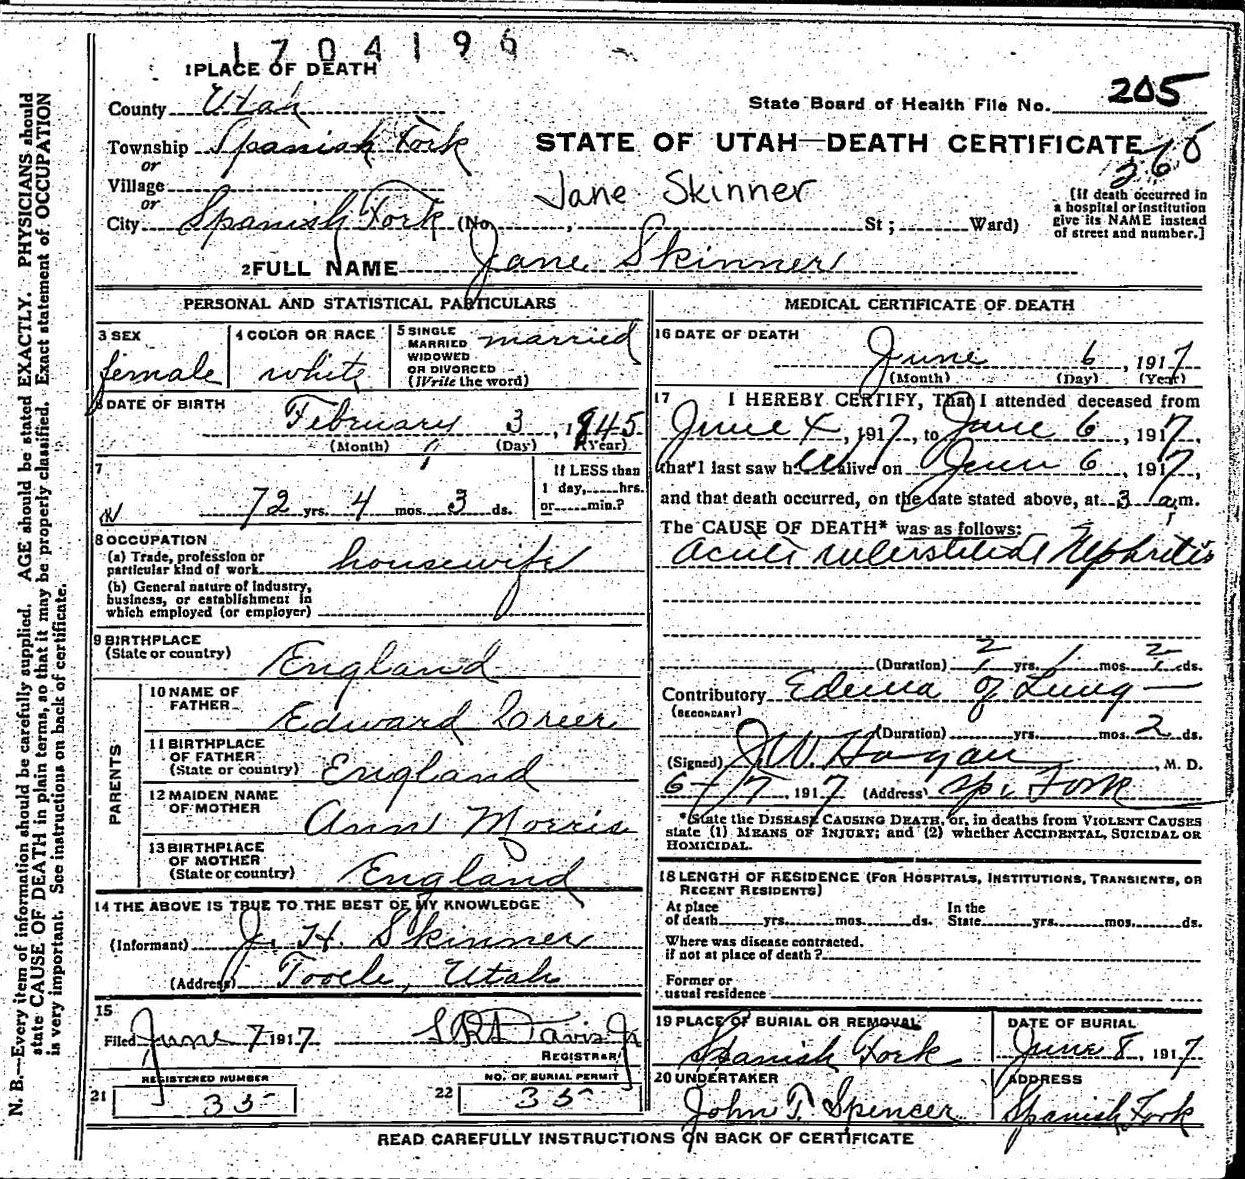 1704196
1 PLACE OF DEATH
County Utah
State Board of Health File No. 205
Township Spanish Fork
STATE OF UTAH—DEATH CERTIFICATE
or
Village
or
Jane Skinner
[If death occurred in
a hospital or institution
give its NAME instead
of street and number.]
City Spanish Fork (No. , St ; Ward)
2 FULL NAME Jane Skinner
PERSONAL AND STATISTICAL PARTICULARS
3 SEX
female
4 COLOR OR RACE
white
5 SINGLE
MARRIED
WIDOWED
OR DIVORCED
(Write the word)
married
6 DATE OF BIRTH
February 3, 1845
(Month) (Day) (Year)
7
72 yrs. 4 mos. 3 ds.
If LESS than
1 day, hrs.
or min.?
8 OCCUPATION
(a) Trade, profession or
particular kind of work housewife
(b) General nature of industry,
business, or establishment in
which employed (or employer)
9 BIRTHPLACE
(State or country) England
PARENTS
10 NAME OF
FATHER Edward Creer
11 BIRTHPLACE
OF FATHER
(State or country) England
12 MAIDEN NAME
OF MOTHER Ann Morris
13 BIRTHPLACE
OF MOTHER
(State or country) England
14 THE ABOVE IS TRUE TO THE BEST OF MY KNOWLEDGE
(Informant) J. H. Skinner
(Address) Tooele, Utah
15
Filed June 7 1917 Davis Jr
REGISTRAR
REGISTERED NUMBER
21 35
NO. OF BURIAL PERMIT
22 35
MEDICAL CERTIFICATE OF DEATH
16 DATE OF DEATH
June 6, 1917
(Month) (Day) (Year)
17 I HEREBY CERTIFY, That I attended deceased from
June 4, 1917, to June 6, 1917,
that I last saw her alive on June 6, 1917,
and that death occurred, on the date stated above, at 3 a m.
The CAUSE OF DEATH* was as follows:
Acute Nephritis
(Duration) yrs. mos. ds.
Contributory Edema of Lung
(SECONDARY)
(Duration) yrs. mos. 2 ds.
(Signed) J W Hagan, M. D.
6/7, 1917 (Address) Sp. Fork
*State the DISEASE CAUSING DEATH, or, in deaths from VIOLENT CAUSES
state (1) MEANS OF INJURY; and (2) whether ACCIDENTAL, SUICIDAL OR
HOMICIDAL.
18 LENGTH OF RESIDENCE (FOR HOSPITALS, INSTITUTIONS, TRANSIENTS, OR
RECENT RESIDENTS)
At place
of death yrs. mos. ds.
In the
State yrs. mos. ds.
Where was disease contracted.
if not at place of death?
Former or
usual residence
19 PLACE OF BURIAL OR REMOVAL
Spanish Fork
DATE OF BURIAL
June 8, 1917
20 UNDERTAKER
John T. Spencer
ADDRESS
Spanish Fork
READ CAREFULLY INSTRUCTIONS ON BACK OF CERTIFICATE
N. B.—Every item of information should be carefully supplied. AGE should be stated EXACTLY. PHYSICIANS should
state CAUSE OF DEATH in plain terms, so that it may be properly classified. Exact statement of OCCUPATION
is very important. See instructions on back of certificate.